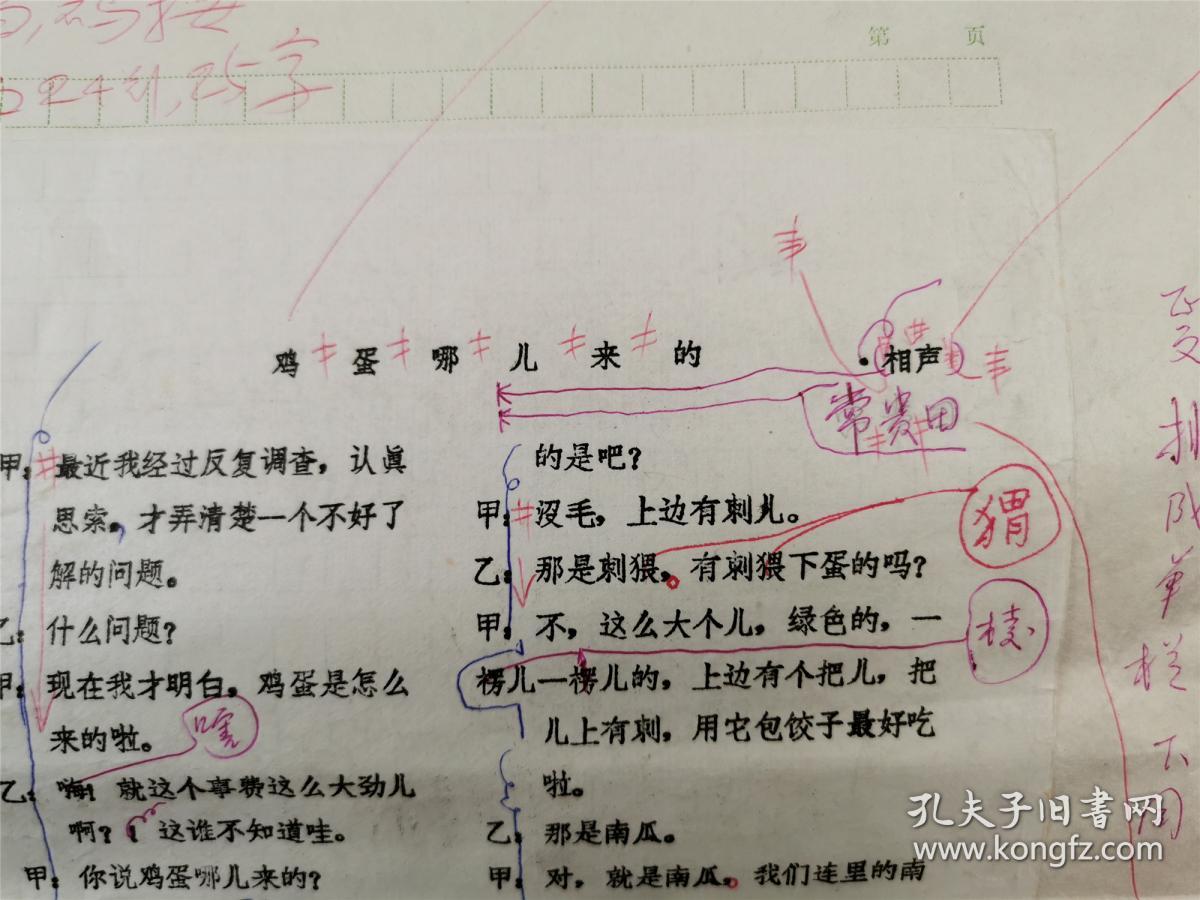 第 页
24
25字
鸡蛋哪儿来的
·相声
常贵田
甲：最近我经过反复调查，认真
思索，才弄清楚一个不好了
解的问题。
乙：什么问题？
甲：现在我才明白，鸡蛋是怎么
来的啦。
嘿
乙：嗨！就这个事费这么大劲儿
啊？！这谁不知道哇。
甲：你说鸡蛋哪儿来的？
的是吧？
甲：没毛，上边有刺儿。
乙：那是刺猥，有刺猥下蛋的吗？
猬
甲：不，这么大个儿，绿色的，一
棱
楞儿一楞儿的，上边有个把儿，把
儿上有刺，用它包饺子最好吃
啦。
乙：那是南瓜。
甲：对，就是南瓜，我们连里的南
孔夫子旧书网
www.kongfz.com